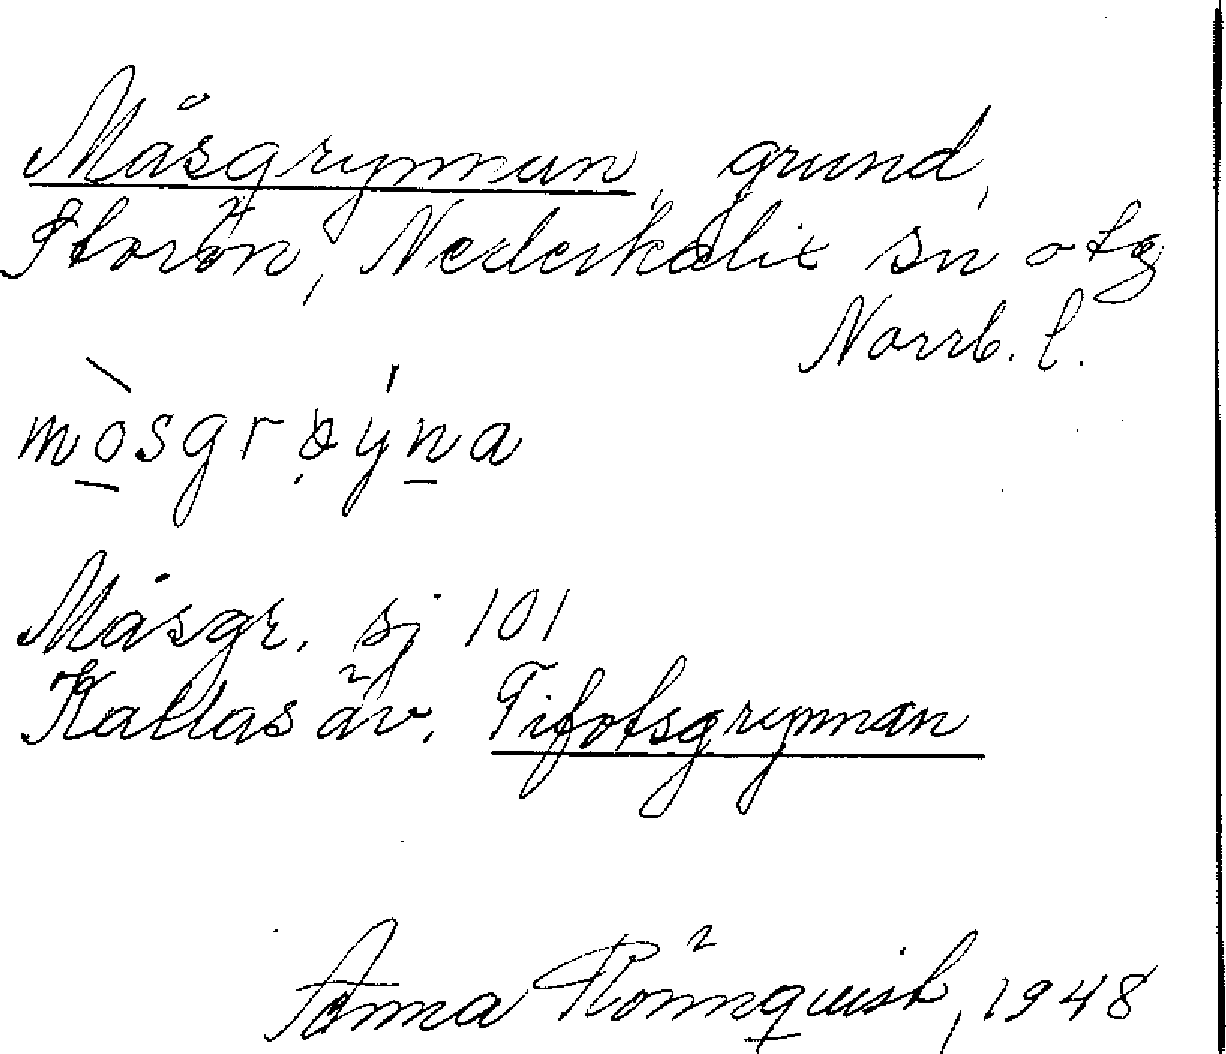 Måsgrynnan, grund,
Storön, Nederkalix sn o tg
Norrb. l.
mòsgrøýna
Måsgr. sj 101
Kallas äv. Tifotsgrynnan
Anna Rönnquist, 1948